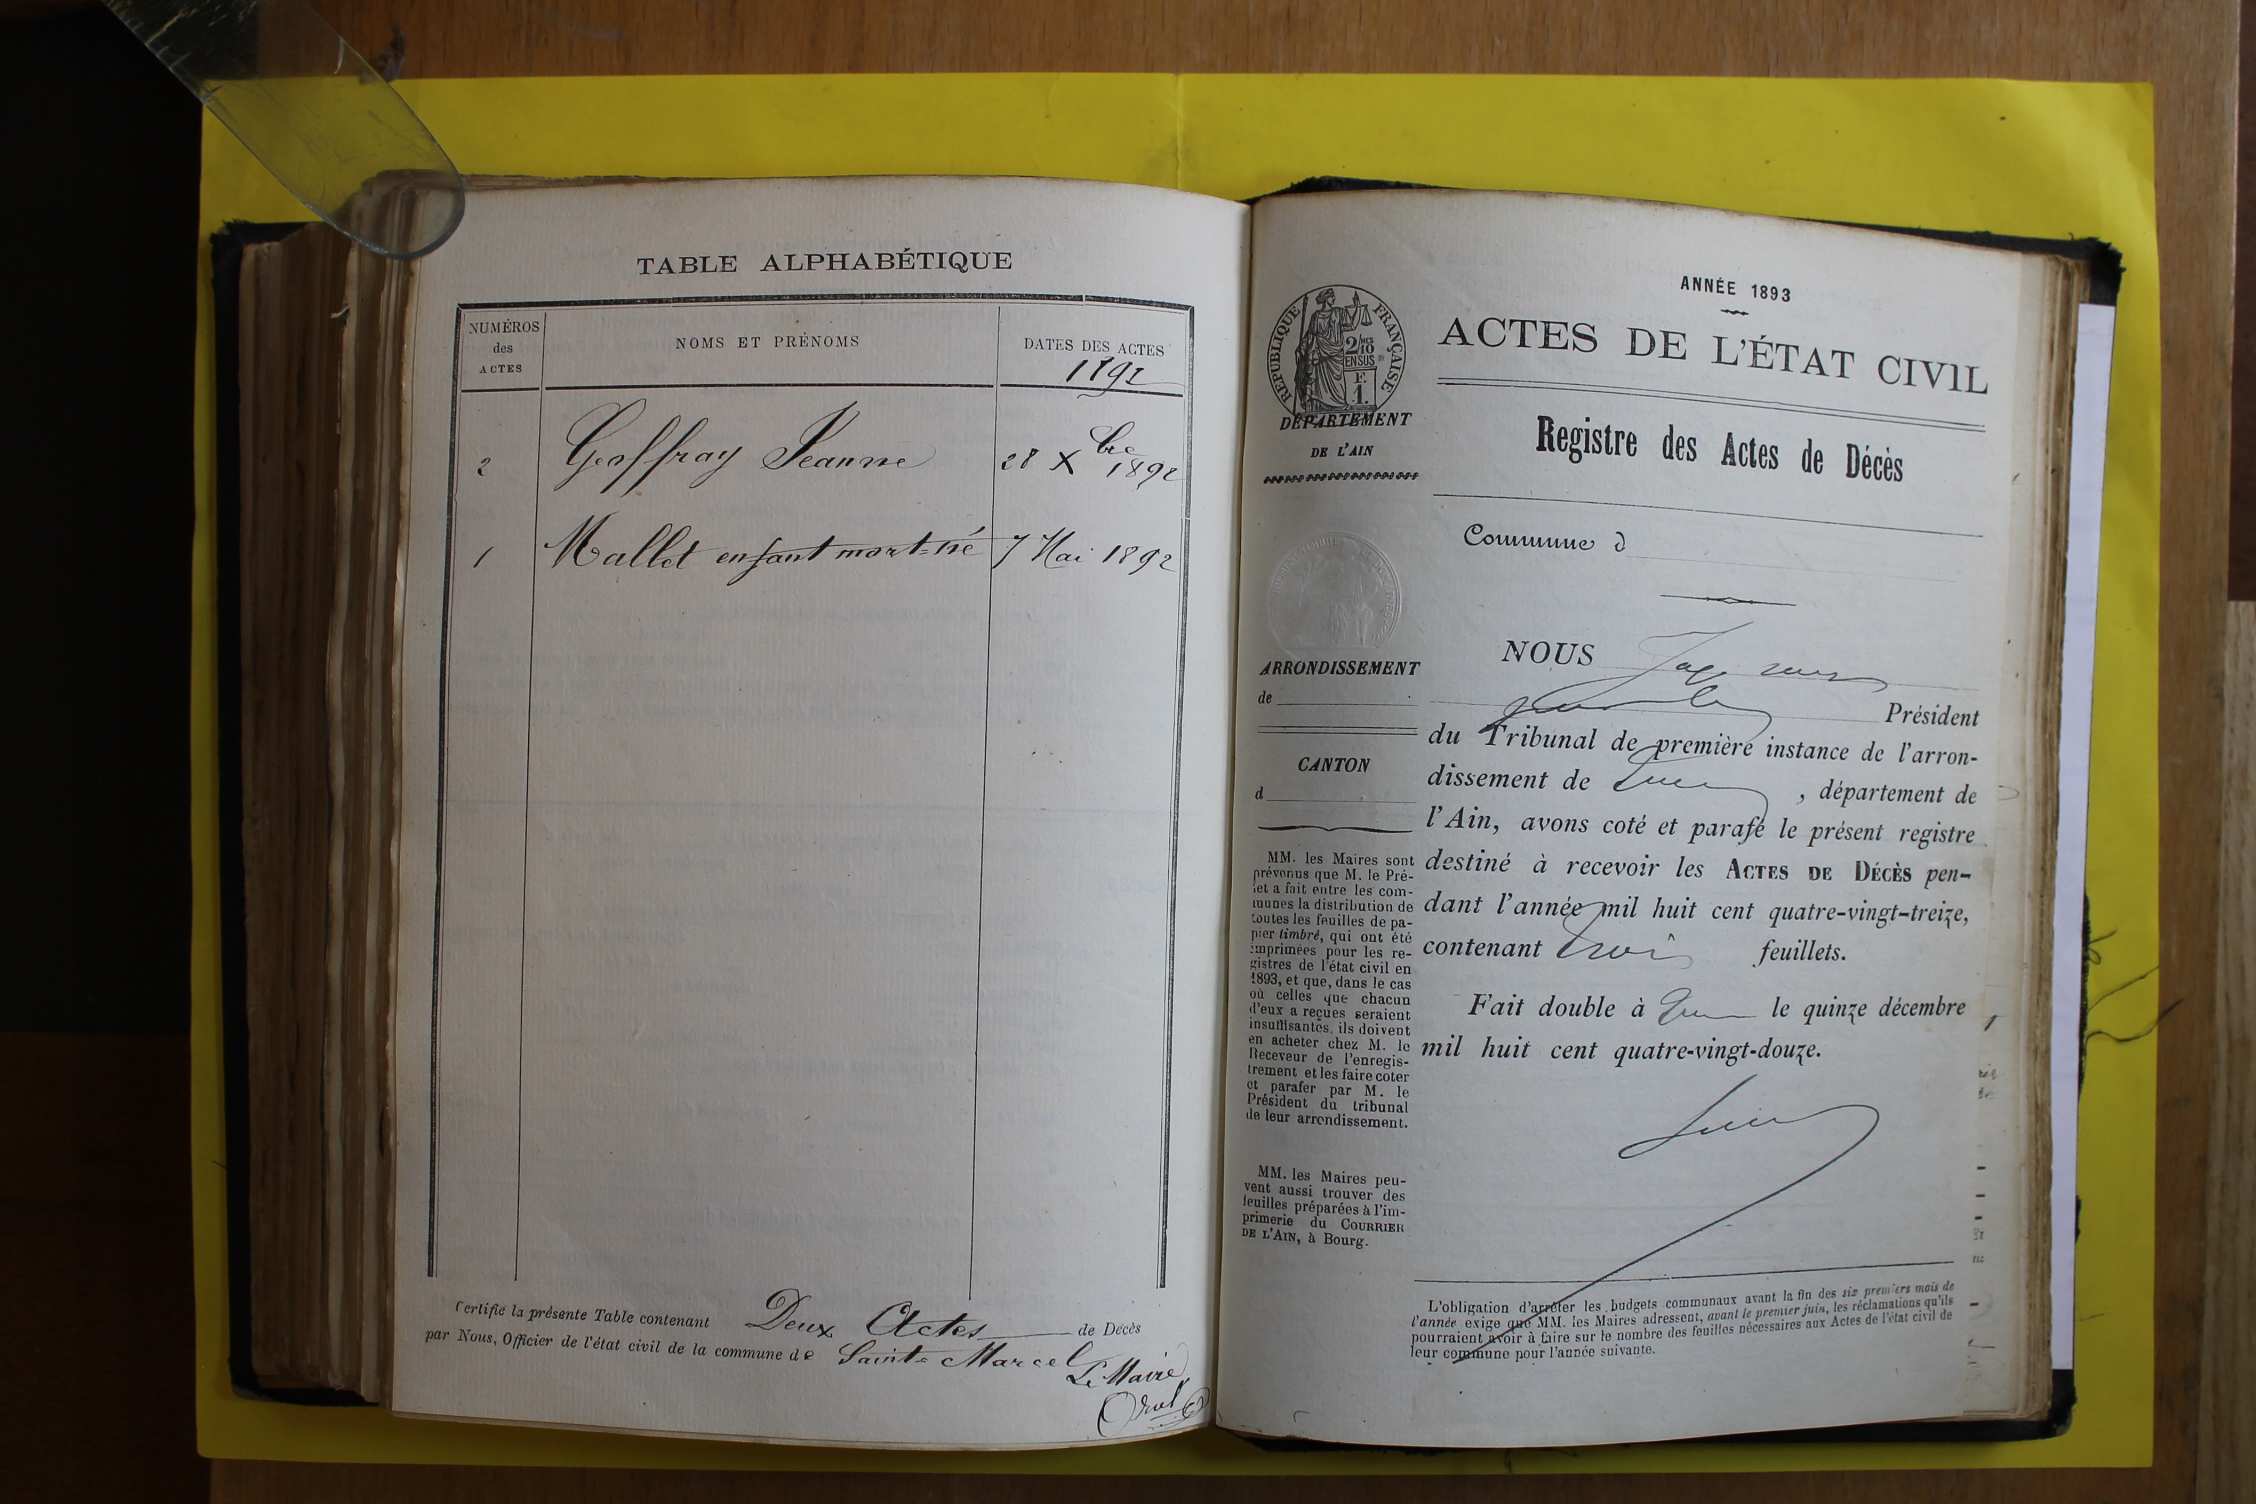 TABLE ALPHABÉTIQUE
NUMÉROS
des
ACTES
NOMS ET PRÉNOMS
DATES DES ACTES
1892
2 Geoffray Jeanne 28 Xbre 1892
1 Mallet enfant mort-né 7 Mai 1892
Certifié la présente Table contenant Deux Actes de Décès
par Nous, Officier de l'état civil de la commune de Sainte Marcel
Le Maire
RÉPUBLIQUE FRANÇAISE
2/10
EN SUS
F.
1.
DÉPARTEMENT
DE L'AIN
ARRONDISSEMENT
de
CANTON
d
MM. les Maires sont
prévenus que M. le Pré-
fet a fait entre les com-
munes la distribution de
toutes les feuilles de pa-
pier timbré, qui ont été
imprimées pour les re-
gistres de l'état civil en
1893, et que, dans le cas
où celles que chacun
d'eux a reçues seraient
insuffisantes, ils doivent
en acheter chez M. le
Receveur de l'enregis-
trement et les faire coter
et parafer par M. le
Président du tribunal
de leur arrondissement.
MM. les Maires peu-
vent aussi trouver des
feuilles préparées à l'im-
primerie du COURRIER
DE L'AIN, à Bourg.
ANNÉE 1893
ACTES DE L'ÉTAT CIVIL
Registre des Actes de Décès
Commune d
NOUS
Président
du Tribunal de première instance de l'arron-
dissement de , département de
l'Ain, avons coté et parafé le présent registre
destiné à recevoir les ACTES DE DÉCÈS pen-
dant l'année mil huit cent quatre-vingt-treize,
contenant trois feuillets.
Fait double à le quinze décembre
mil huit cent quatre-vingt-douze.
L'obligation d'arrêter les budgets communaux avant la fin des six premiers mois de
l'année exige que MM. les Maires adressent, avant le premier juin, les réclamations qu'ils
pourraient avoir à faire sur le nombre des feuilles nécessaires aux Actes de l'état civil de
leur commune pour l'année suivante.